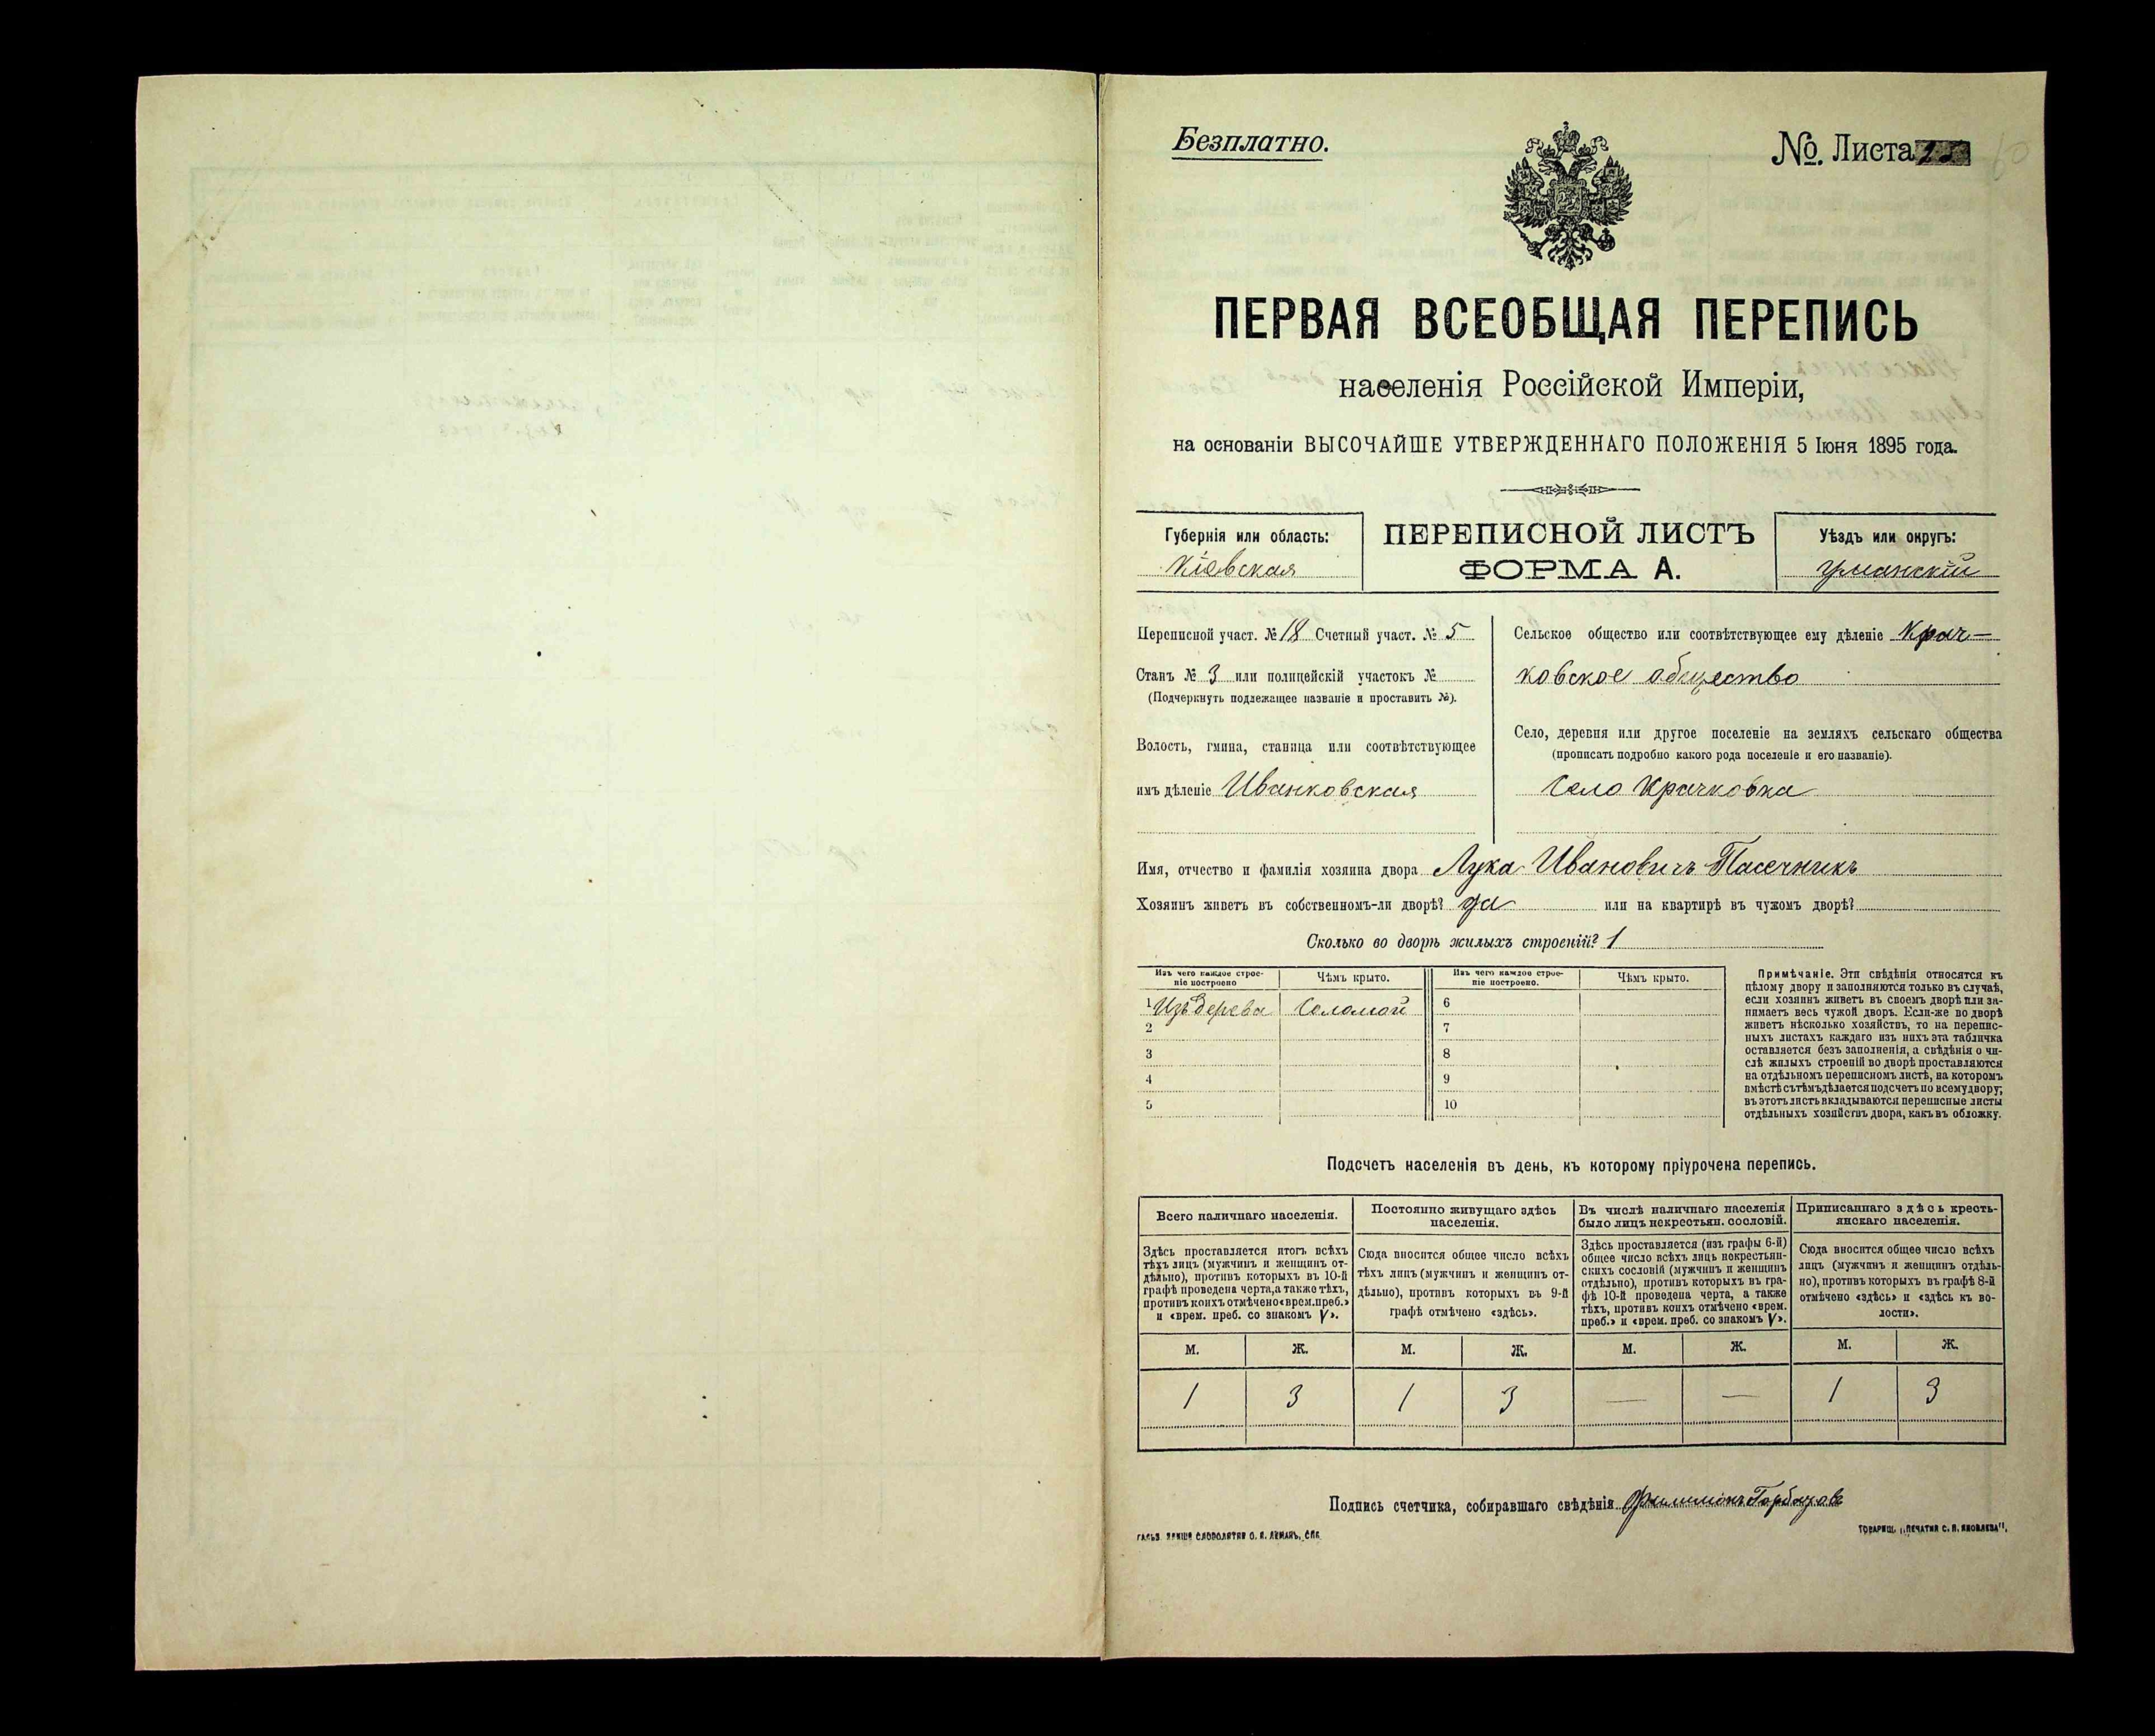 Безплатно.
№. Листа
ПЕРВАЯ ВСЕОБЩАЯ ПЕРЕПИСЬ
населенія Россійской Имперіи,
на основаніи ВЫСОЧАЙШЕ УТВЕРЖДЕННАГО ПОЛОЖЕНІЯ 5 Іюня 1895 года.
Губернія или область:
Кіевская
ПЕРЕПИСНОЙ ЛИСТЪ
ФОРМА А.
Уѣздъ или округъ:
Уманскій
Переписной участ. № 18 Счетный участ. № 5
Станъ № 3 или полицейскій участокъ №
(Подчеркнуть подлежащее названіе и проставить №).
Волость, гмина, станица или соотвѣтствующее
имъ дѣленіе Иванковская
Сельское общество или соотвѣтствующее ему дѣленіе Крач-
ковское общество
Село, деревня или другое поселеніе на земляхъ сельскаго общества
(прописать подробно какого рода поселеніе и его названіе).
Село Крачковка
Имя, отчество и фамилія хозяина двора Лука Ивановичъ Пасечникъ
Хозяинъ живетъ въ собственномъ-ли дворѣ? да или на квартирѣ въ чужомъ дворѣ?
Сколько во дворѣ жилыхъ строеній? 1
Изъ чего каждое строе-
ніе построено
Чѣмъ крыто.
Изъ чего каждое строе-
ніе построено.
Чѣмъ крыто.
1 Изъ дерева Соломой 6
2 7
3 8
4 9
5 10
Примѣчаніе. Эти свѣдѣнія относятся къ
цѣлому двору и заполняются только въ случаѣ,
если хозяинъ живетъ въ своемъ дворѣ или за-
нимаетъ весь чужой дворъ. Если-же во дворѣ
живетъ нѣсколько хозяйствъ, то на перепис-
ныхъ листахъ каждаго изъ нихъ эта табличка
оставляется безъ заполненія, а свѣдѣнія о чи-
слѣ жилыхъ строеній во дворѣ проставляются
на отдѣльномъ переписномъ листѣ, на которомъ
вмѣстѣ съ тѣмъ дѣлается подсчетъ по всему двору;
въ этотъ листъ вкладываются переписные листы
отдѣльныхъ хозяйствъ двора, какъ въ обложку.
Подсчетъ населенія въ день, къ которому пріурочена перепись.
Всего наличнаго населенія.
Постоянно живущаго здѣсь
населенія.
Въ числѣ наличнаго населенія
было лицъ некрестьян. сословій.
Приписаннаго здѣсь кресть-
янскаго населенія.
Здѣсь проставляется итогъ всѣхъ
тѣхъ лицъ (мужчинъ и женщинъ от-
дѣльно), противъ которыхъ въ 10-й
графѣ проведена черта, а также тѣхъ,
противъ коихъ отмѣчено «врем. преб.»
и «врем. преб. со знакомъ V».
Сюда вносится общее число всѣхъ
тѣхъ лицъ (мужчинъ и женщинъ от-
дѣльно), противъ которыхъ въ 9-й
графѣ отмѣчено «здѣсь».
Здѣсь проставляется (изъ графы 6-й)
общее число всѣхъ лицъ некрестьян-
скихъ сословій (мужчинъ и женщинъ
отдѣльно), противъ которыхъ въ гра-
фѣ 10-й проведена черта, а также
тѣхъ, противъ коихъ отмѣчено «врем.
преб.» и «врем. преб. со знакомъ V».
Сюда вносится общее число всѣхъ
лицъ (мужчинъ и женщинъ отдѣль-
но), противъ которыхъ въ графѣ 8-й
отмѣчено «здѣсь» и «здѣсь къ во-
лости».
М. Ж. М. Ж. М. Ж. М. Ж.
1 3 1 3 — — 1 3
Подпись счетчика, собиравшаго свѣдѣнія Филимонъ
ТОВАРИЩ. „ПЕЧАТНЯ С. П. ЯКОВЛЕВА“.